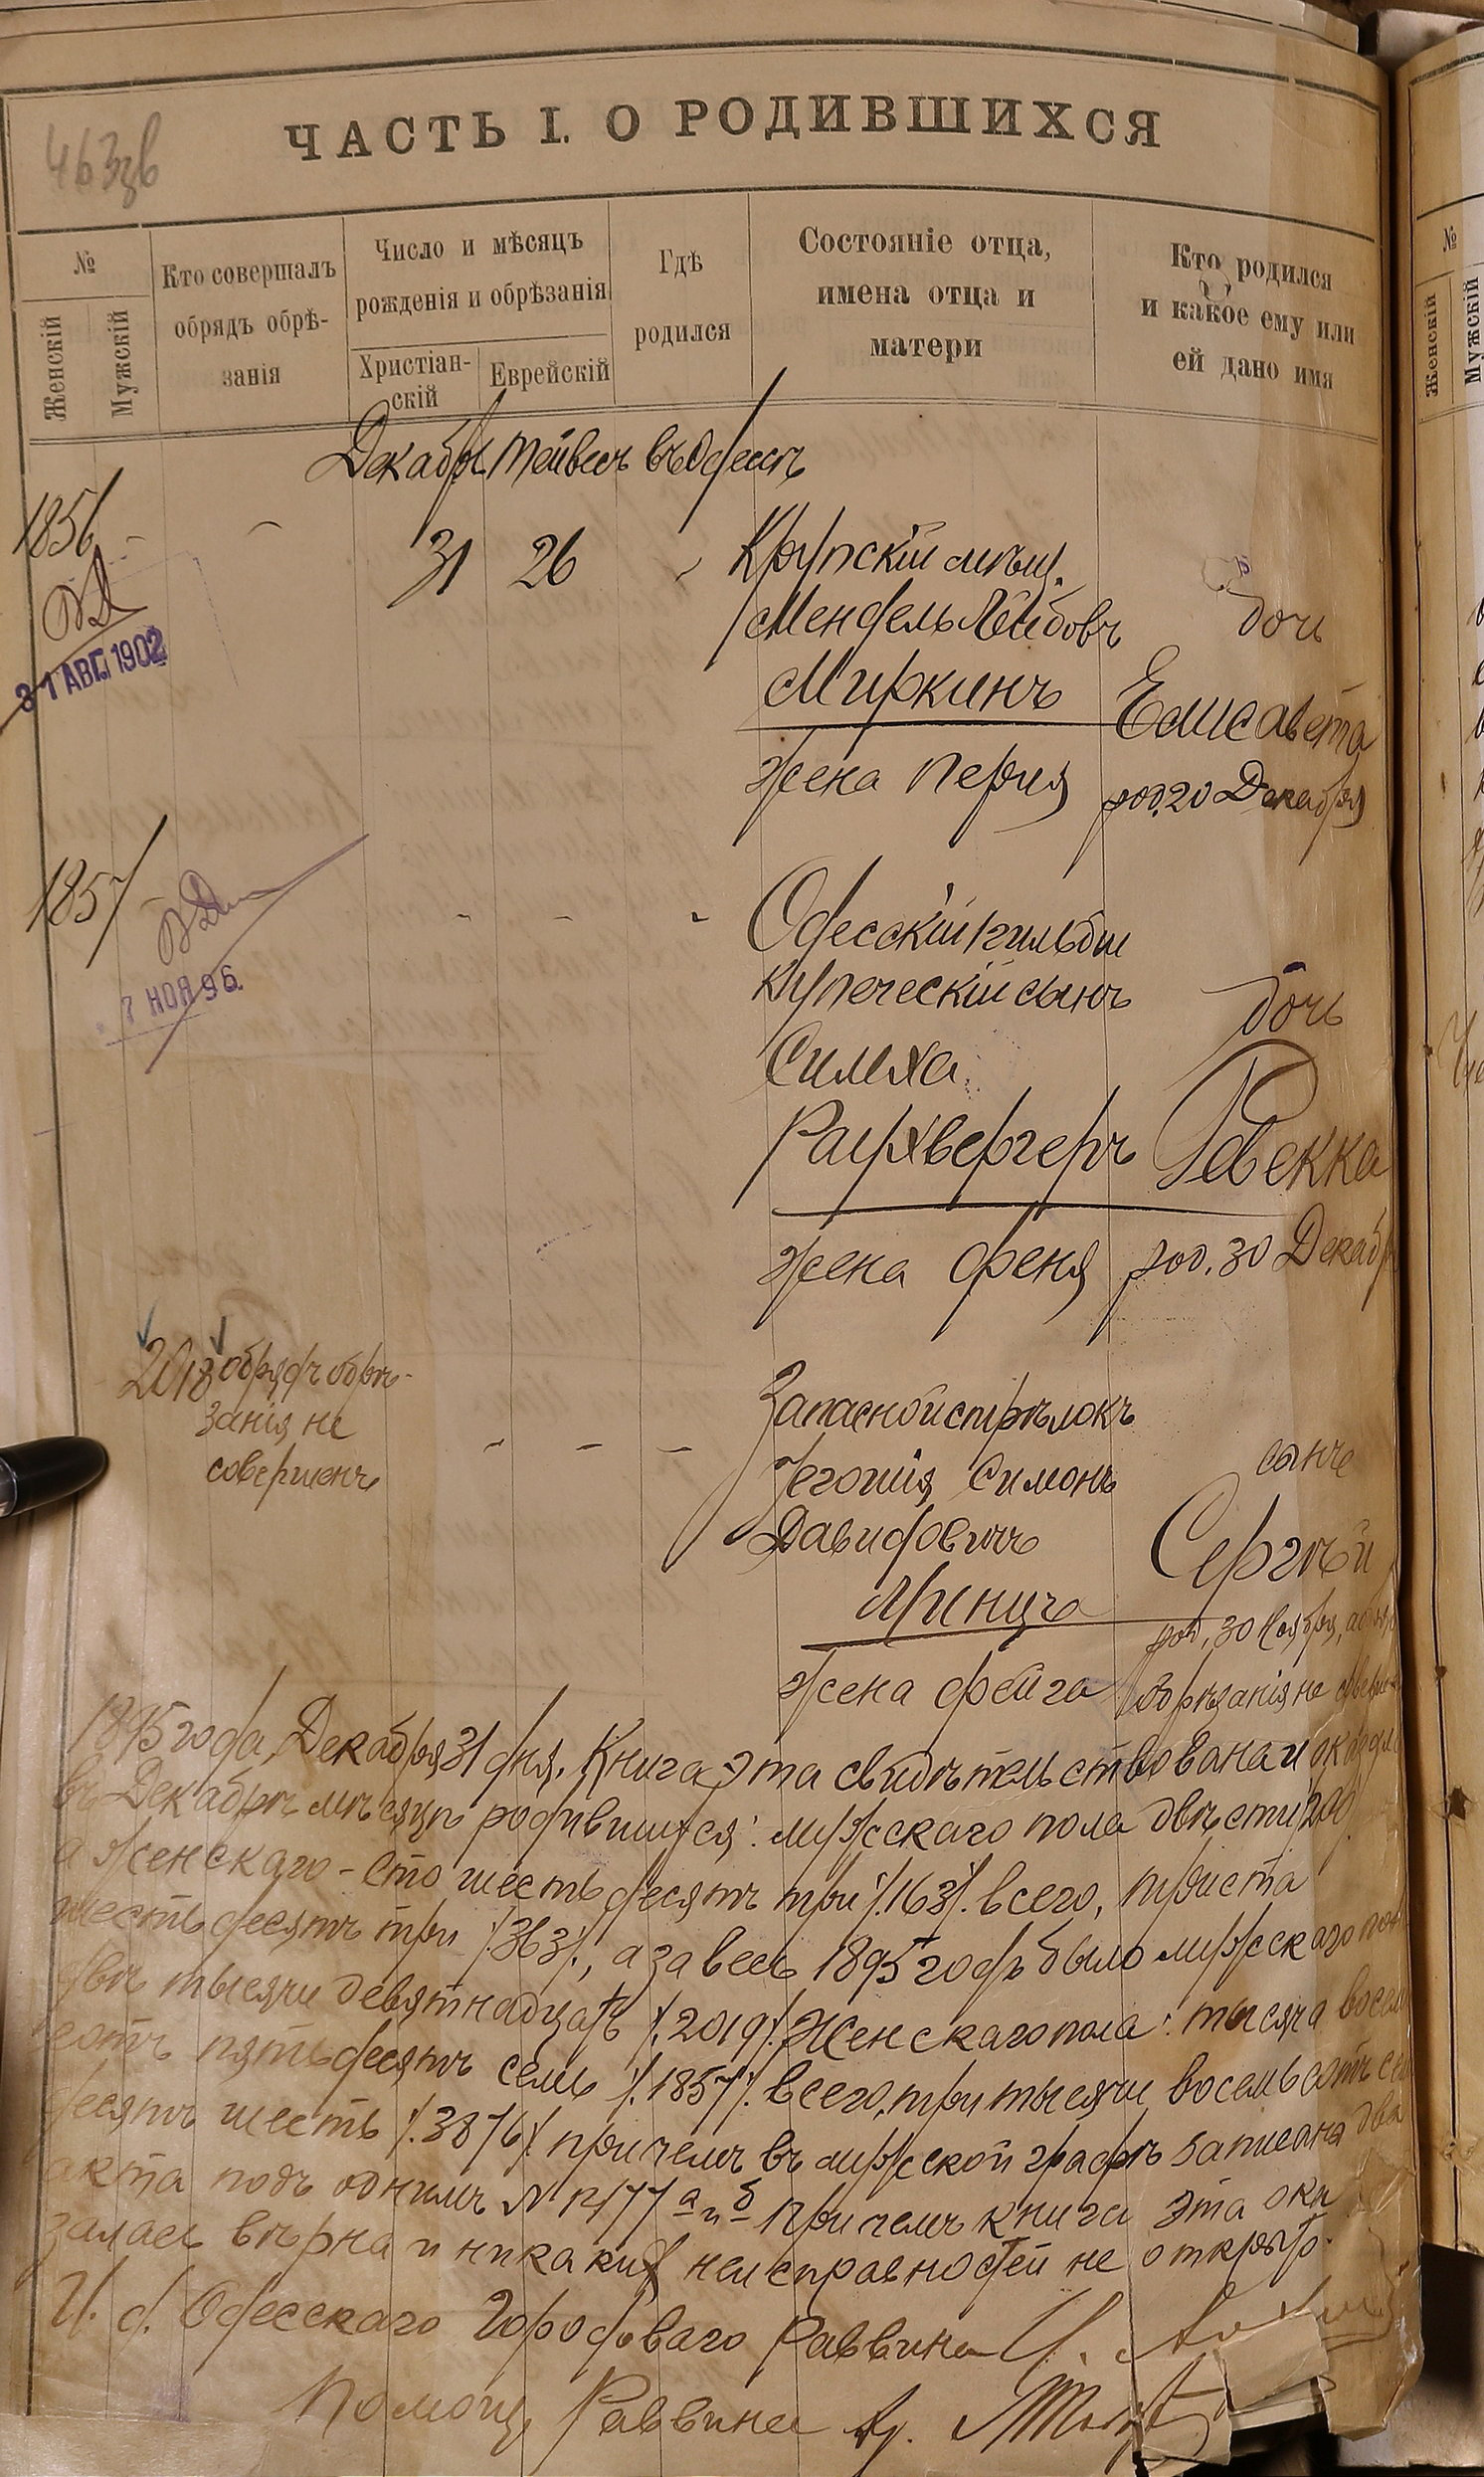 463зв
ЧАСТЬ I. О РОДИВШИХСЯ
№
Женскій
Мужскій
Кто совершалъ
обрядъ обрѣ-
занія
Число и мѣсяцъ
рожденія и обрѣзанія
Христіан-
скій
Еврейскій
Гдѣ
родился
Состояніе отца,
имена отца и
матери
Кто родился
и какое ему или
ей дано имя
Декабрь Тейвесъ въ Одессѣ
1856 - - 31 26 -
31 АВГ. 1902
Крупскій мѣщ.
Мендель Лейбовъ
Миркинъ
жена Перля
дочь
Елисавета
род. 20 Декабря
1857 - - - -
7 НОЯ 96.
Одесскій 1 гильдіи
купеческій сынъ
Симха
Раухвергеръ
жена Феня
дочь
Ревекка
род. 30 Декабр
2018 обрядъ обрѣ-
занія не
совершенъ
- - -
Запасной стрѣлокъ
Іегошія Симонъ
Давидовичъ
Минцъ
жена Фейга
сынъ
Сергѣй
род. 30 Ноября,
обрѣзанія не
1895 года, Декабря 31 дня. Книга эта свидѣтельствована и
въ Декабрѣ мѣсяцѣ родившихся: мужскаго пола двѣсти /200/
а женскаго - сто шестьдесятъ три /.163/. всего, триста
шестьдесятъ три /.363/., а за весь 1895 годъ было мужскаго пол
двѣ тысячи девятнадцать /.2019/. Женскаго пола: тысяча восем
сотъ пятьдесятъ семь /.1857/. всего, три тысячи восемьсотъ
десятъ шесть /.3876/. причемъ въ мужской графѣ записано два
акта подъ однимъ № 1477 а и б причемъ книга эта ока
залась вѣрна и никакихъ неисправностей не открыто.
И. д. Одесскаго Городоваго Раввина
Помощ. Раввина
№
Женскій
Мужскій